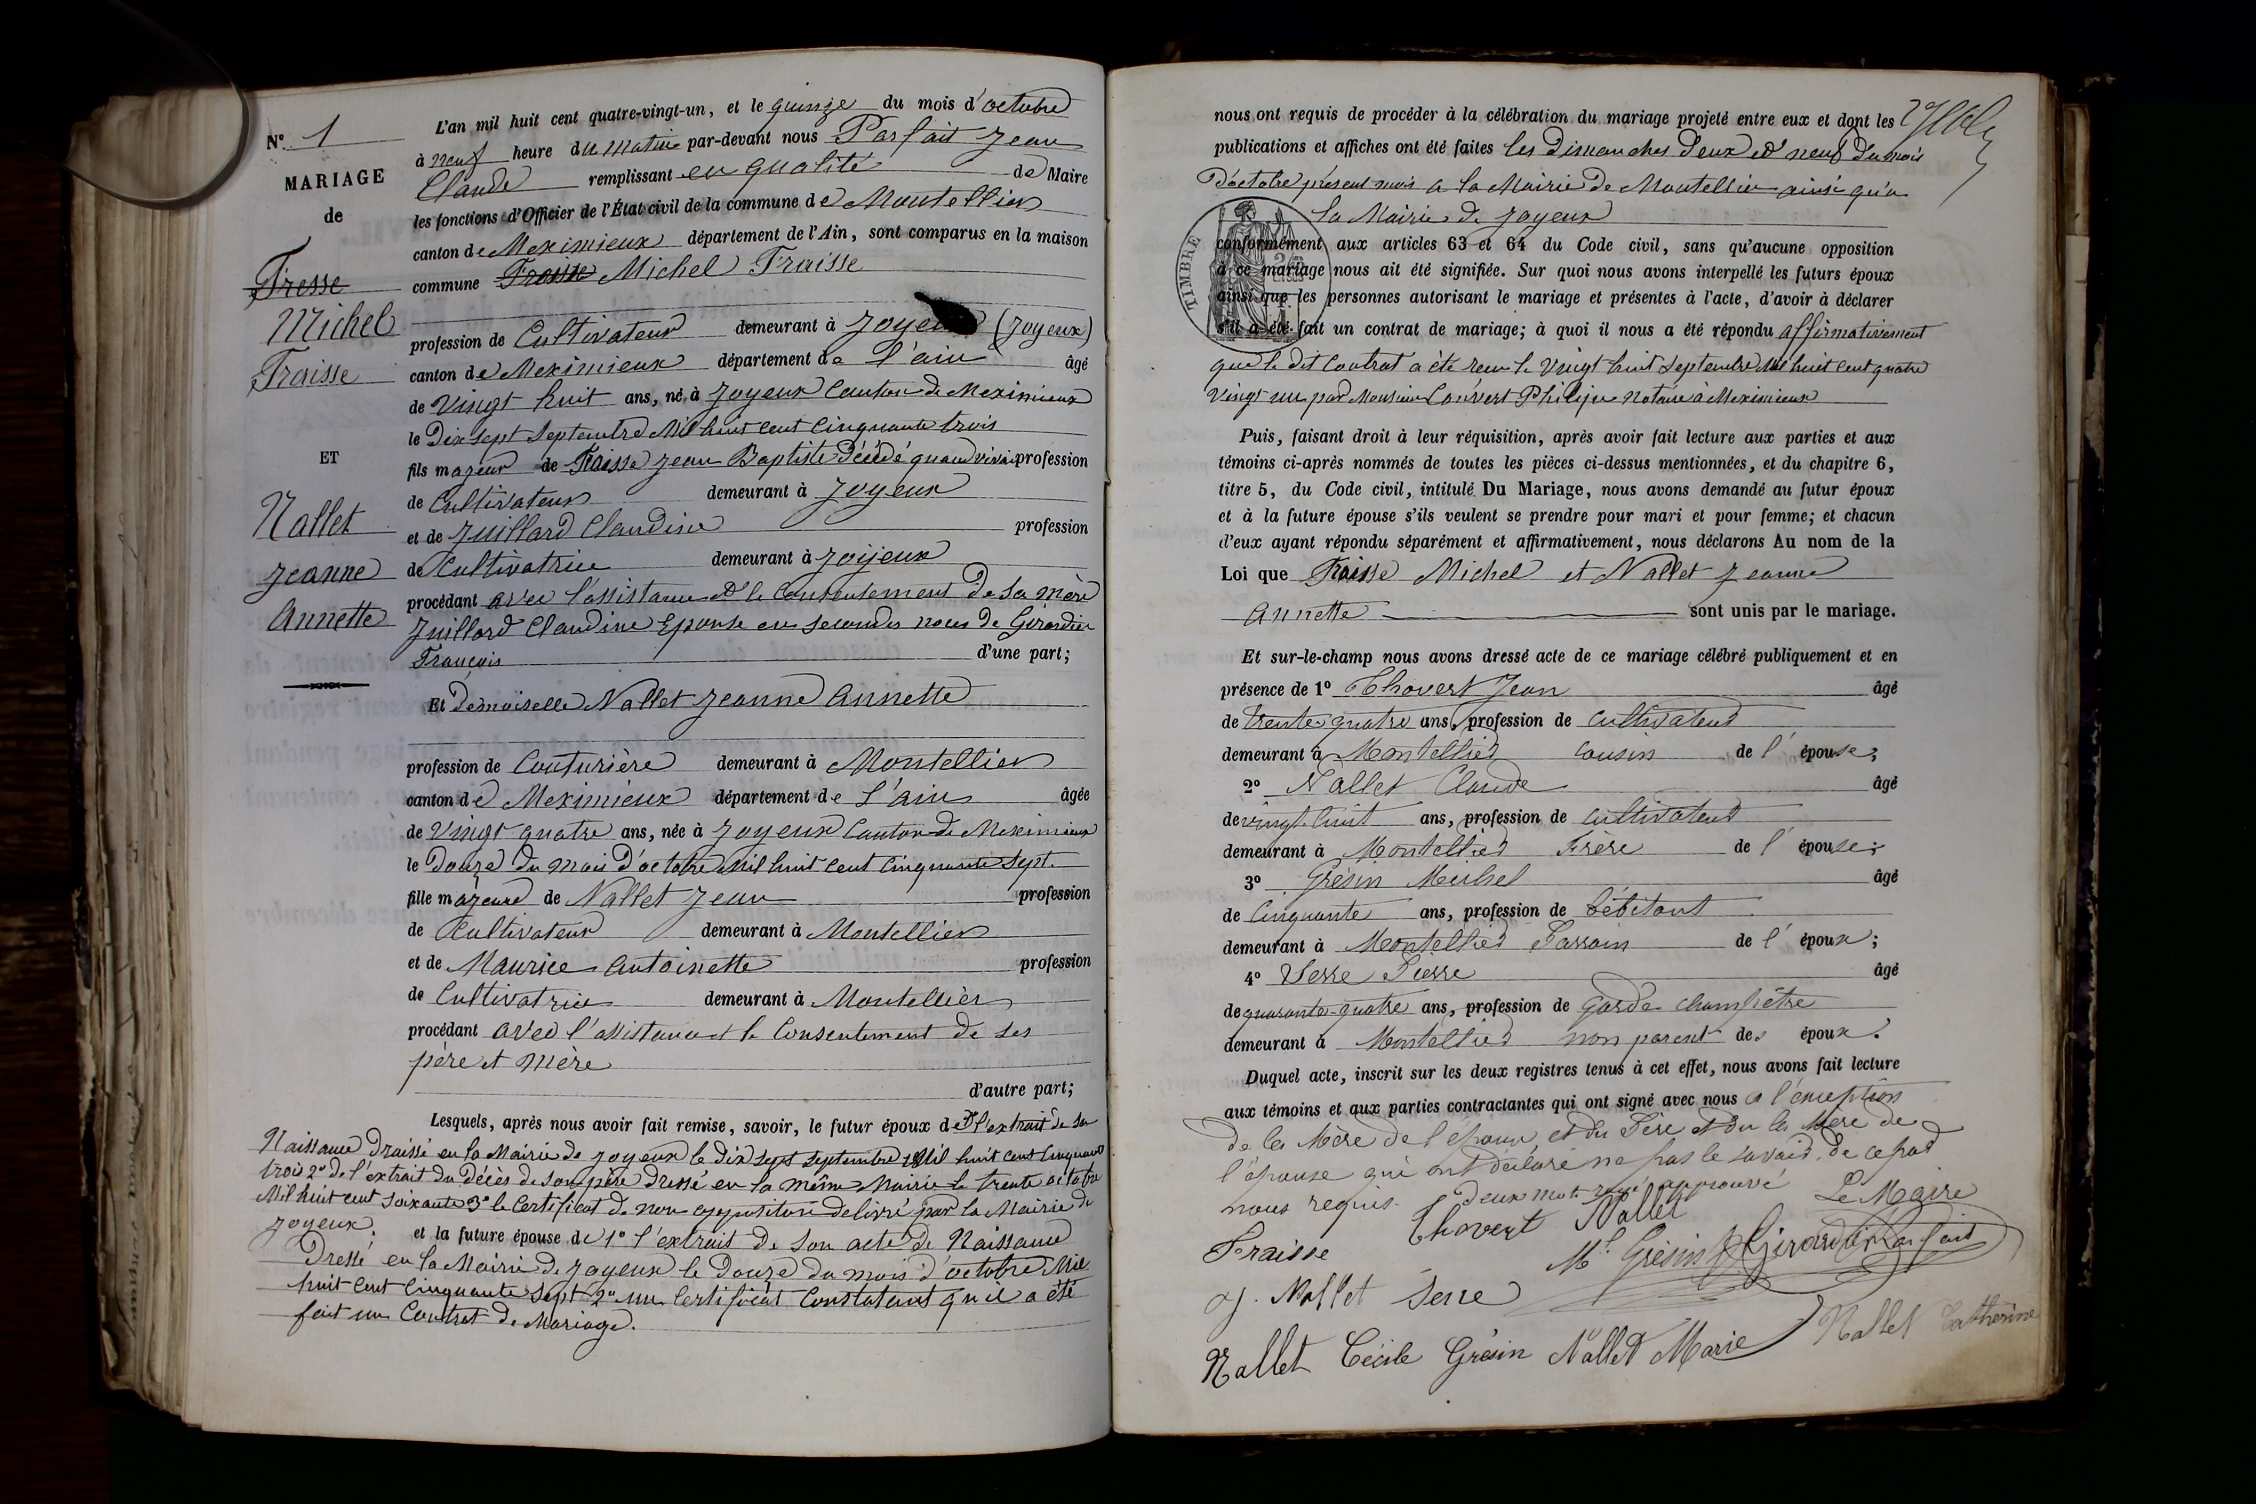 N° 1
MARIAGE
de
Fresse
Michel
Fraisse
ET
Nallet
Jeanne
Annette
L'an mil huit cent quatre-vingt-un, et le quinze du mois d'octobre
à neuf heure du matin par-devant nous Parfait Jean
Claude remplissant en qualité de Maire
les fonctions d'Officier de l'État civil de la commune de Montellier
canton de Meximieux département de l'Ain, sont comparus en la maison
commune Fraisse Michel Fraisse
profession de Cultivateur demeurant à Joyeux (Joyeux)
canton de Meximieux département de l'ain âgé
de Vingt huit ans, né à Joyeux Canton de Meximieux
le Dix sept Septembre Mil huit cent Cinquante trois
fils majeur de Fraisse Jean Baptiste Décédé quand vivai profession
de Cultivateur demeurant à Joyeux
et de Juillard Claudine profession
de Cultivatrice demeurant à Joyeux
procédant avec l'assistance et le Consentement de Sa mère
Juillard Claudine Epouse en Secondes noces de Girardin
François d'une part;
Et Demoiselle Nallet Jeanne Annette
profession de Couturière demeurant à Montellier
canton de Meximieux département de l'ain âgée
de Vingt quatre ans, née à Joyeux Canton de Meximieux
le Douze du mois d'octobre Mil huit cent Cinquante Sept
fille majeure de Nallet Jean profession
de Cultivateur demeurant à Montellier
et de Maurice Antoinette profession
de Cultivatrice demeurant à Montellier
procédant avec l'assistance et le Consentement de Ses
père et mère
d'autre part;
Lesquels, après nous avoir fait remise, savoir, le futur époux de l'extrait de Sa
Naissance Draissé en la Mairie de Joyeux le Dix Sept Septembre Mil huit cent Cinquante
trois 2° de l'extrait du Décès de Son père Dressé en la même Mairie le trente octobre
Mil huit cent Soixante 3° le Certificat de non opposition delivré par la Mairie de
Joyeux. et la future épouse de 1° l'extrait de Son acte de Naissance
Dressé en la Mairie de Joyeux le Douze du mois d'octobre Mil
huit cent Cinquante Sept 2° un Certificat Constatant qu'il a été
fait un Contrat de Mariage.
nous ont requis de procéder à la célébration du mariage projeté entre eux et dont les
publications et affiches ont été faites les Dimanches Deux et neuf Du mois
D'octobre présent mois a la Mairie de Montellier ainsi qu'a
la Mairie de Joyeux
TIMBRE
conformément aux articles 63 et 64 du Code civil, sans qu'aucune opposition
à ce mariage nous ait été signifiée. Sur quoi nous avons interpellé les futurs époux
ainsi que les personnes autorisant le mariage et présentes à l'acte, d'avoir à déclarer
s'il a été fait un contrat de mariage; à quoi il nous a été répondu affirmativement
que le dit Contrat a été recu le Vingt huit Septembre Mil huit cent quatre
Vingt un par Monsieur Convert Philipe Notaire à Meximieux
Puis, faisant droit à leur réquisition, après avoir fait lecture aux parties et aux
témoins ci-après nommés de toutes les pièces ci-dessus mentionnées, et du chapitre 6,
titre 5, du Code civil, intitulé Du Mariage, nous avons demandé au futur époux
et à la future épouse s'ils veulent se prendre pour mari et pour femme; et chacun
d'eux ayant répondu séparément et affirmativement, nous déclarons Au nom de la
Loi que Fraisse Michel et Nallet Jeanne
Annette sont unis par le mariage.
Et sur-le-champ nous avons dressé acte de ce mariage célébré publiquement et en
présence de 1° Thovert Jean âgé
de trente quatre ans, profession de cultivateur
demeurant à Montellier cousin de l'épouse;
2° Nallet Claude âgé
de vingt-huit ans, profession de cultivateur
demeurant à Montellier Frère de l'épouse;
3° Grésin Michel âgé
de cinquante ans, profession de débitant
demeurant à Montellier Parrain de l'époux;
4° Serre Pierre âgé
de quarante-quatre ans, profession de garde champêtre
demeurant à Montellier non parent des époux.
Duquel acte, inscrit sur les deux registres tenus à cet effet, nous avons fait lecture
aux témoins et aux parties contractantes qui ont signé avec nous a l'exception
de la Mère de l'époux et du Père et du la Mère de
l'épouse qui ont déclaré ne pas le savoir de ce par
nous requis. deux mots rayé approuvé
Thovert Nallet Le Maire
Fraisse Ml Grésin Girardin Parfait
J. Nallet Serre
Nallet Cécile Grésin Nallet Marie Nallet Catherine